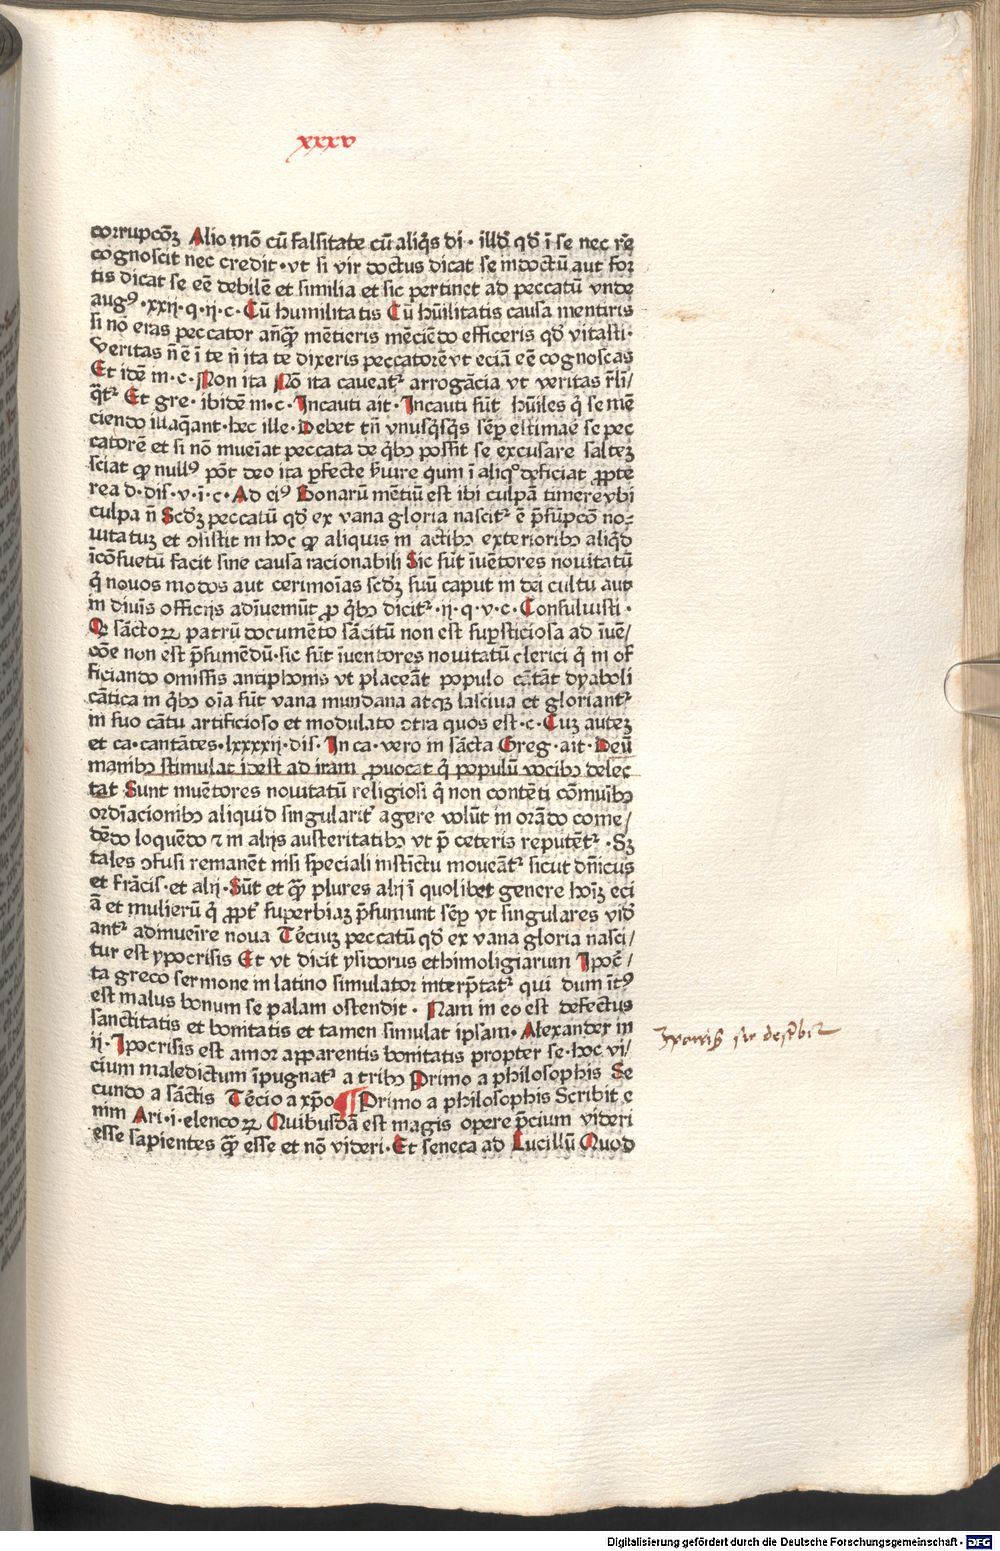 xxxv
corrupcōꝫ Alio mō cū falsitate cū aliq̄s dī · illđ qđ ī se nec rē
cognoscit nec credit · vt si vir doctus dicat se indoctū aut for
tis dicat se eē debilē et similia et sic pertinet ad peccatū vnde
augꝰ · xxij · q · ij · c · Cū humilitatis Cū hūilitatis causa mentiris
si nō eras peccator an̄qꝫ mētieris mēciēdo efficeris qđ vitasti ·
Veritas n̄ ē ī te n̄ ita te dixeris peccatorē vt eciā eē cognoscas
Et idē in · c · Non ita Nō ita caueatᷣ arrogācia vt veritas r̄li/
q̄tᷣ Et gre · ibidē in · c · Incauti ait · Incauti sūt hūiles q̄ se mē
ciendo illaq̄ant · hec ille · Debet tn̄ vnusq̄sqꝫ sēp estimāe se pec
catorē et si nō inueīat peccata de q̄bꝫ possit se excusare salteꝫ
sciat ꝙ nullꝰ pōt deo ita ꝑfecte ẜuire quin ī aliqᵒ deficiat ꝓpte
rea d · dis · v · ī · c · Ad eiꝰ Bonarū mētiū est ibi culpā timere vbi
culpa n̄ Scđꝫ peccatū qđ ex vana gloria nascitᷣ ē p̄sūpcō no-
uitatuꝫ et ↄsistit in hoc ꝙ aliquis in actibꝫ exterioribꝫ aliqđ
īcōsuetū facit sine causa racionabili Sic sūt īuētores nouitatū
q̄ nouos modos aut cerimoīas scđꝫ suū caput in dei cultu aut
in diuīs officijs adīuemūt ꝓ q̄bꝫ dicitᷣ · ij · q · v · c · Consuluisti ·
Qꝫ sāctoꝝ patrū documēto sācitū non est suꝑsticiosa ad īuē/
cōe non est p̄sumēdū · sic sūt īuentores nouitatū clerici q̄ in of
ficiando omissis antiphonis vt placeāt populo cātāt dyaboli
cātica in q̄bꝫ oīa sūt vana mundana atqꝫ lasciua et gloriantᷣ
in suo cātu artificioso et modulato ↄtra quos est · c · Cuꝫ auteꝫ
et ca · cantātes · lxxxxij · dis · In ca · vero in sācta Greg · ait · Deū
moribꝫ stimulat idest ad iram ꝓuocat q̄ populū vocibꝫ delec
tat Sunt inuētores nouitatū religiosi q̄ non contēti cōmuībꝫ
ordīacionibꝫ aliquid singularitᷣ agere volūt in orādo come/
dēdo loquēdo ⁊ in alijs austeritatibꝫ vt p̄ ceteris reputētᷣ · Sꝫ
tales ↄfusi remanēt nisi speciali instīctu moueātᷣ sicut dn̄icus
et frācis · et alij · Sūt et qꝫ plures alij ī quolibet genere hoīꝫ eci
ā et mulierū q̄ ꝓpt᷑ superbiaꝫ p̄sumunt sēp vt singulares viđ
antᷣ admueīre noua Tēciuꝫ peccatū qđ ex vana gloria nasci/
tur est ypocrisis Et vt dicit ysidorus ethimoligiarum Ipoc̄/
ta greco sermone in latino simulator interp̄tatᷣ qui dum īt᷑ꝰ
est malus bonum se palam ostendit · Nam in eo est defectus
sanctitatis et bonitatis et tamen simulat ipsam · Alexander in
ij · Ipocrisis est amor apparentis bonitatis propter se · hoc vi/
cium maledictum īpugnatᷣ a tribꝫ Primo a philosophis Se
cundo a sāctis Tēcio a xp̄o ¶ Primo a philosophis Scribit e
nim Ari · i · elencoꝝ Quibusdā est magis opere p̄cium videri
esse sapientes qꝫ esse et nō videri · Et seneca ad Lucillū Quod
Digitalisierung gefördert durch die Deutsche Forschungsgemeinschaft - DFG